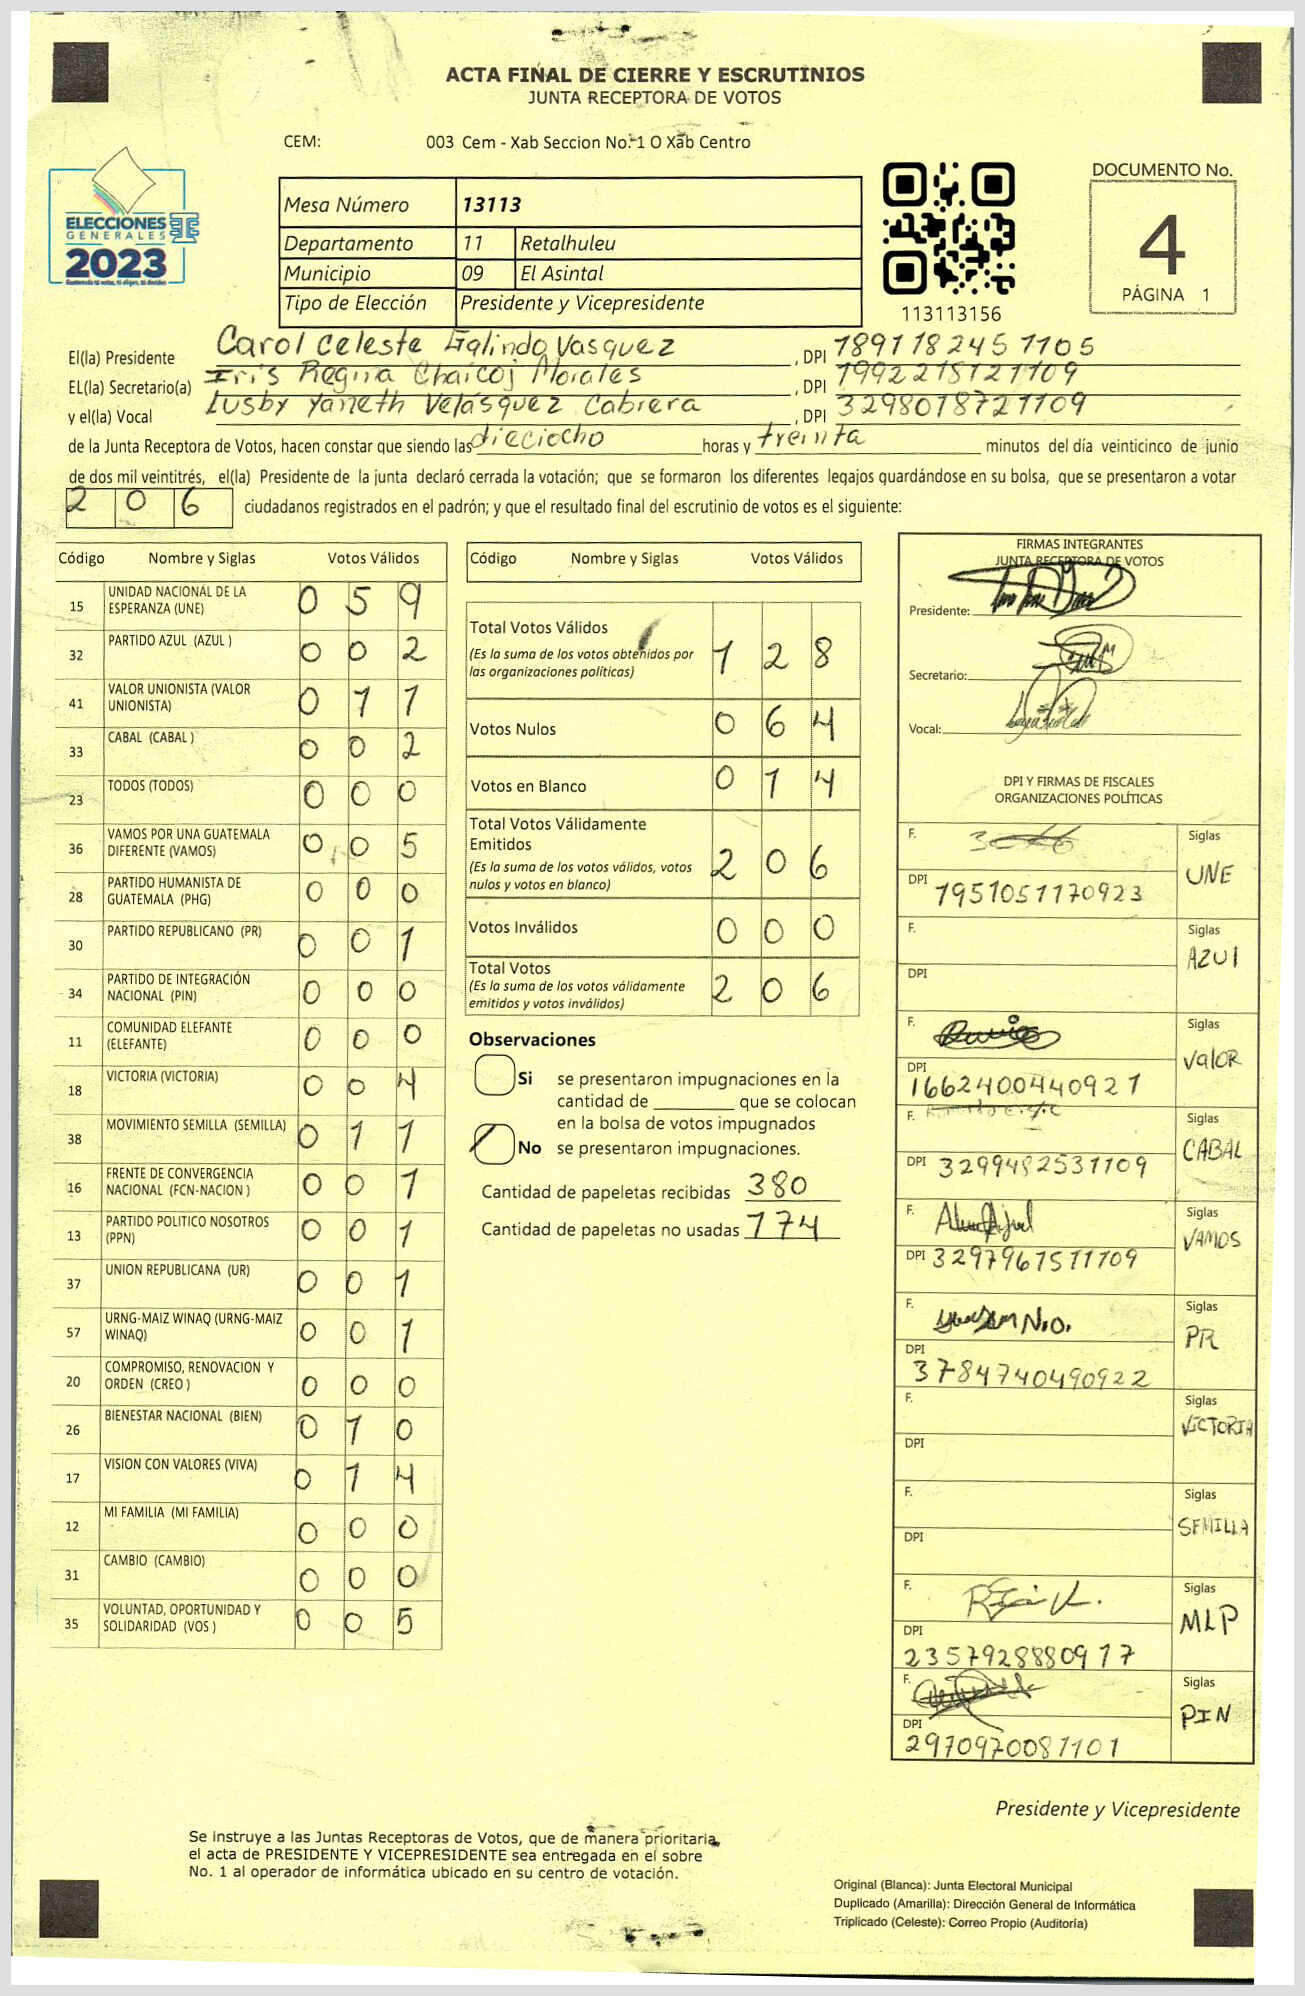 ACTA FINAL DE CIERRE Y ESCRUTINIOS
JUNTA RECEPTORA DE VOTOS
CEM: 003 Cem - Xab Seccion No. 1 O Xab Centro
ELECCIONES
GENERALES
2023
Mesa Número 13113
Departamento 11 Retalhuleu
Municipio 09 El Asintal
Tipo de Elección Presidente y Vicepresidente
113113156
DOCUMENTO No.
4
PÁGINA 1
El(la) Presidente Carol Celeste Galindo Vasquez, DPI 1891182451105
EL(la) Secretario(a) Iris Regina Chaicoj Morales, DPI 1992218121109
y el(la) Vocal Lusby Yaneth Velásquez Cabrera, DPI 3298018721109
de la Junta Receptora de Votos, hacen constar que siendo las dieciocho horas y treinta minutos del día veinticinco de junio
de dos mil veintitrés, el(la) Presidente de la junta declaró cerrada la votación; que se formaron los diferentes legajos quardándose en su bolsa, que se presentaron a votar
2 0 6 ciudadanos registrados en el padrón; y que el resultado final del escrutinio de votos es el siguiente:
Código Nombre y Siglas Votos Válidos
15 UNIDAD NACIONAL DE LA ESPERANZA (UNE) 0 5 9
32 PARTIDO AZUL (AZUL ) 0 0 2
41 VALOR UNIONISTA (VALOR UNIONISTA) 0 1 1
33 CABAL (CABAL ) 0 0 2
23 TODOS (TODOS) 0 0 0
36 VAMOS POR UNA GUATEMALA DIFERENTE (VAMOS) 0 0 5
28 PARTIDO HUMANISTA DE GUATEMALA (PHG) 0 0 0
30 PARTIDO REPUBLICANO (PR) 0 0 1
34 PARTIDO DE INTEGRACIÓN NACIONAL (PIN) 0 0 0
11 COMUNIDAD ELEFANTE (ELEFANTE) 0 0 0
18 VICTORIA (VICTORIA) 0 0 4
38 MOVIMIENTO SEMILLA (SEMILLA) 0 1 1
16 FRENTE DE CONVERGENCIA NACIONAL (FCN-NACION ) 0 0 1
13 PARTIDO POLITICO NOSOTROS (PPN) 0 0 1
37 UNION REPUBLICANA (UR) 0 0 1
57 URNG-MAIZ WINAQ (URNG-MAIZ WINAQ) 0 0 1
20 COMPROMISO, RENOVACION Y ORDEN (CREO ) 0 0 0
26 BIENESTAR NACIONAL (BIEN) 0 1 0
17 VISION CON VALORES (VIVA) 0 1 4
12 MI FAMILIA (MI FAMILIA) 0 0 0
31 CAMBIO (CAMBIO) 0 0 0
35 VOLUNTAD, OPORTUNIDAD Y SOLIDARIDAD (VOS ) 0 0 5
Código Nombre y Siglas Votos Válidos
Total Votos Válidos 1 2 8
(Es la suma de los votos obtenidos por
las organizaciones políticas)
Votos Nulos 0 6 4
Votos en Blanco 0 1 4
Total Votos Válidamente
Emitidos 2 0 6
(Es la suma de los votos válidos, votos
nulos y votos en blanco)
Votos Inválidos 0 0 0
Total Votos 2 0 6
(Es la suma de los votos válidamente
emitidos y votos inválidos)
Observaciones
Si se presentaron impugnaciones en la
cantidad de ________ que se colocan
en la bolsa de votos impugnados
No se presentaron impugnaciones.
Cantidad de papeletas recibidas 380
Cantidad de papeletas no usadas 174
FIRMAS INTEGRANTES
JUNTA RECEPTORA DE VOTOS
Presidente:
Secretario:
Vocal:
DPI Y FIRMAS DE FISCALES
ORGANIZACIONES POLÍTICAS
F. Siglas UNE
DPI 1951051170923
F. Siglas AZUl
DPI
F. Siglas ValOR
DPI 1662400440921
F. Siglas CABAL
DPI 3299482531109
F. Siglas VAMOS
DPI 3297961511109
F. Siglas PR
DPI 3784740490922
F. Siglas VICTORIA
DPI
F. Siglas SEMILLA
DPI
F. Siglas MLP
DPI 2357928880917
F. Siglas PIN
DPI 2970970081101
Presidente y Vicepresidente
Se instruye a las Juntas Receptoras de Votos, que de manera prioritaria,
el acta de PRESIDENTE Y VICEPRESIDENTE sea entregada en el sobre
No. 1 al operador de informática ubicado en su centro de votación.
Original (Blanca): Junta Electoral Municipal
Duplicado (Amarilla): Dirección General de Informática
Triplicado (Celeste): Correo Propio (Auditoría)